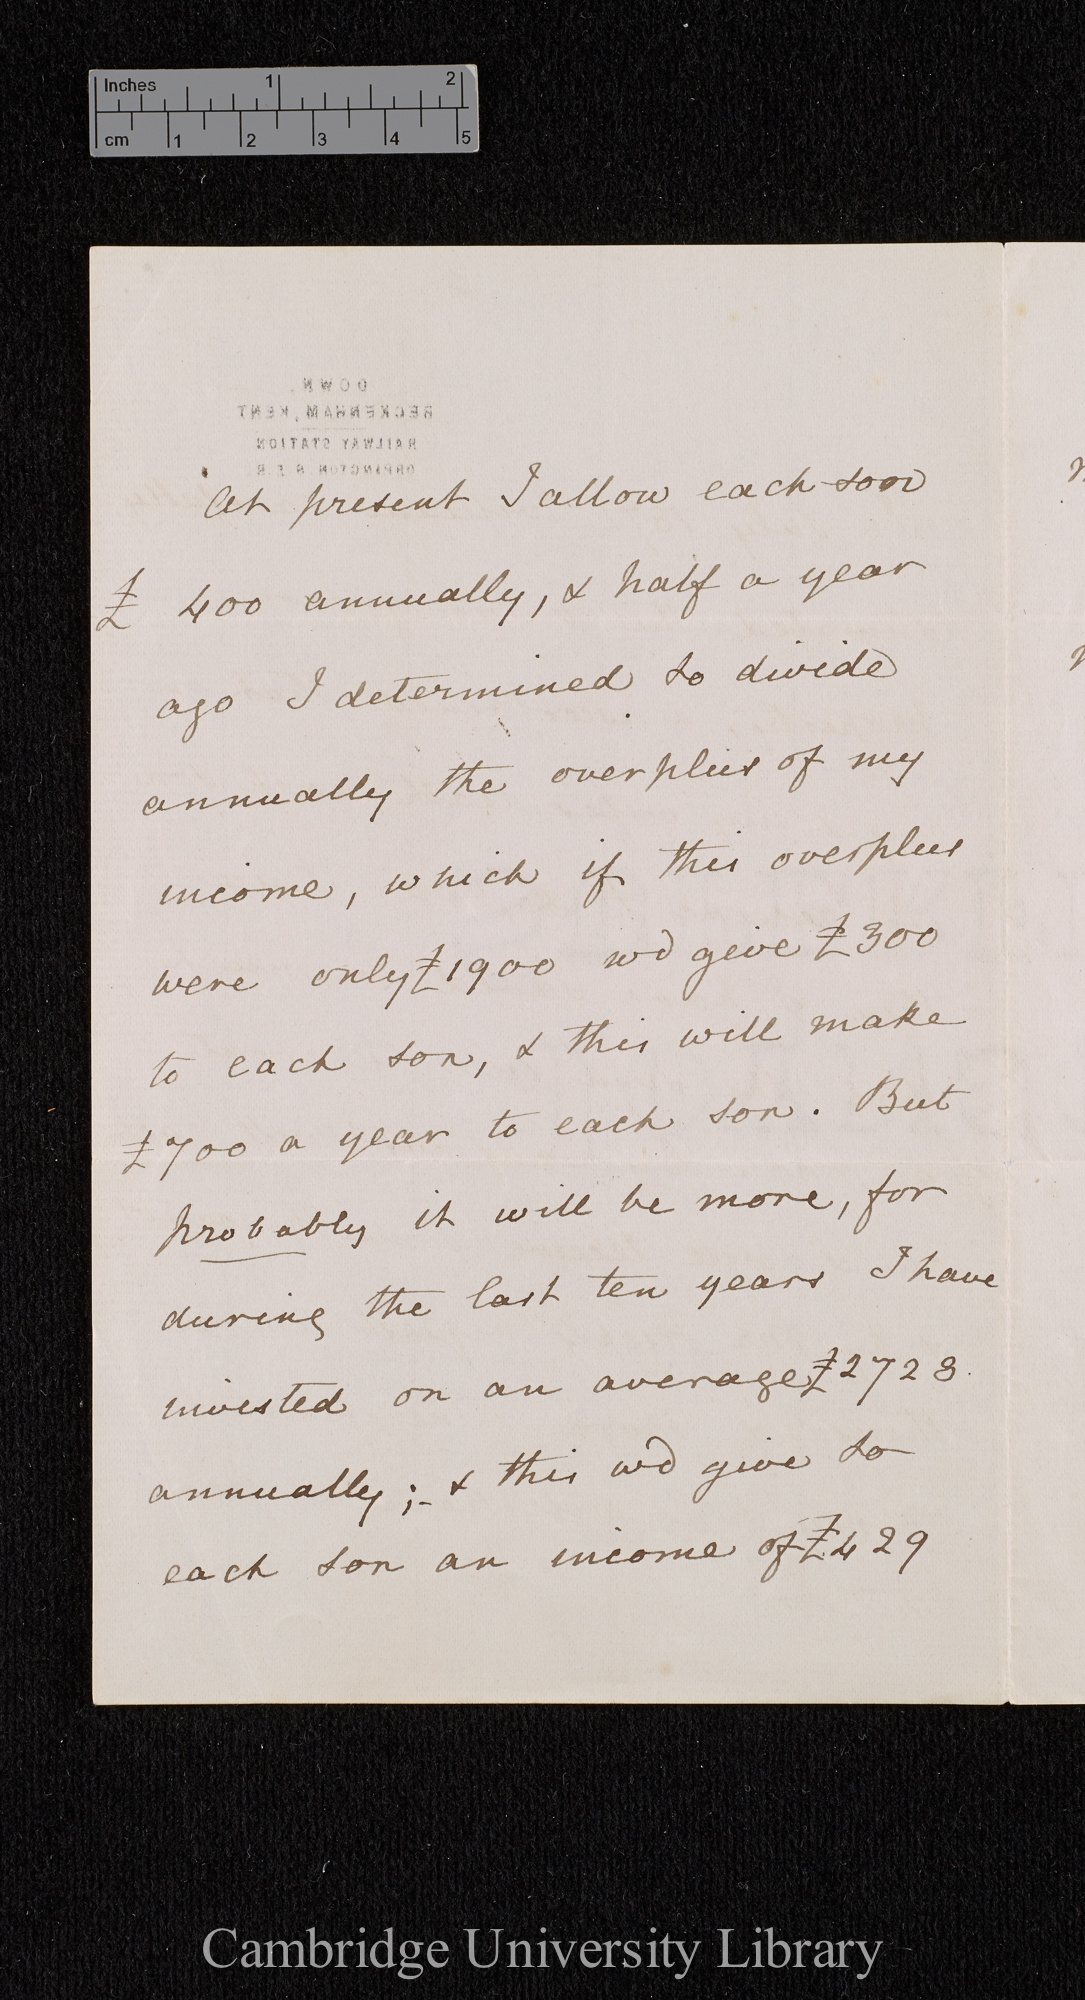 Inches 1 2
cm 1 2 3 4 5
DOWN,
BECKENHAM, KENT
RAILWAY STATION
ORPINGTON. S. E. R.
At present I allow each son
£ 400 annually, & half a year
ago I determined to divide
annually the overplus of my
income, which if this overplus
were only £1900 wd give £300
to each son, & this will make
£700 a year to each son. But
probably it will be more, for
during the last ten years I have
invested on an average £2728
annually; & this wd give to
each son an income of £429
Cambridge University Library